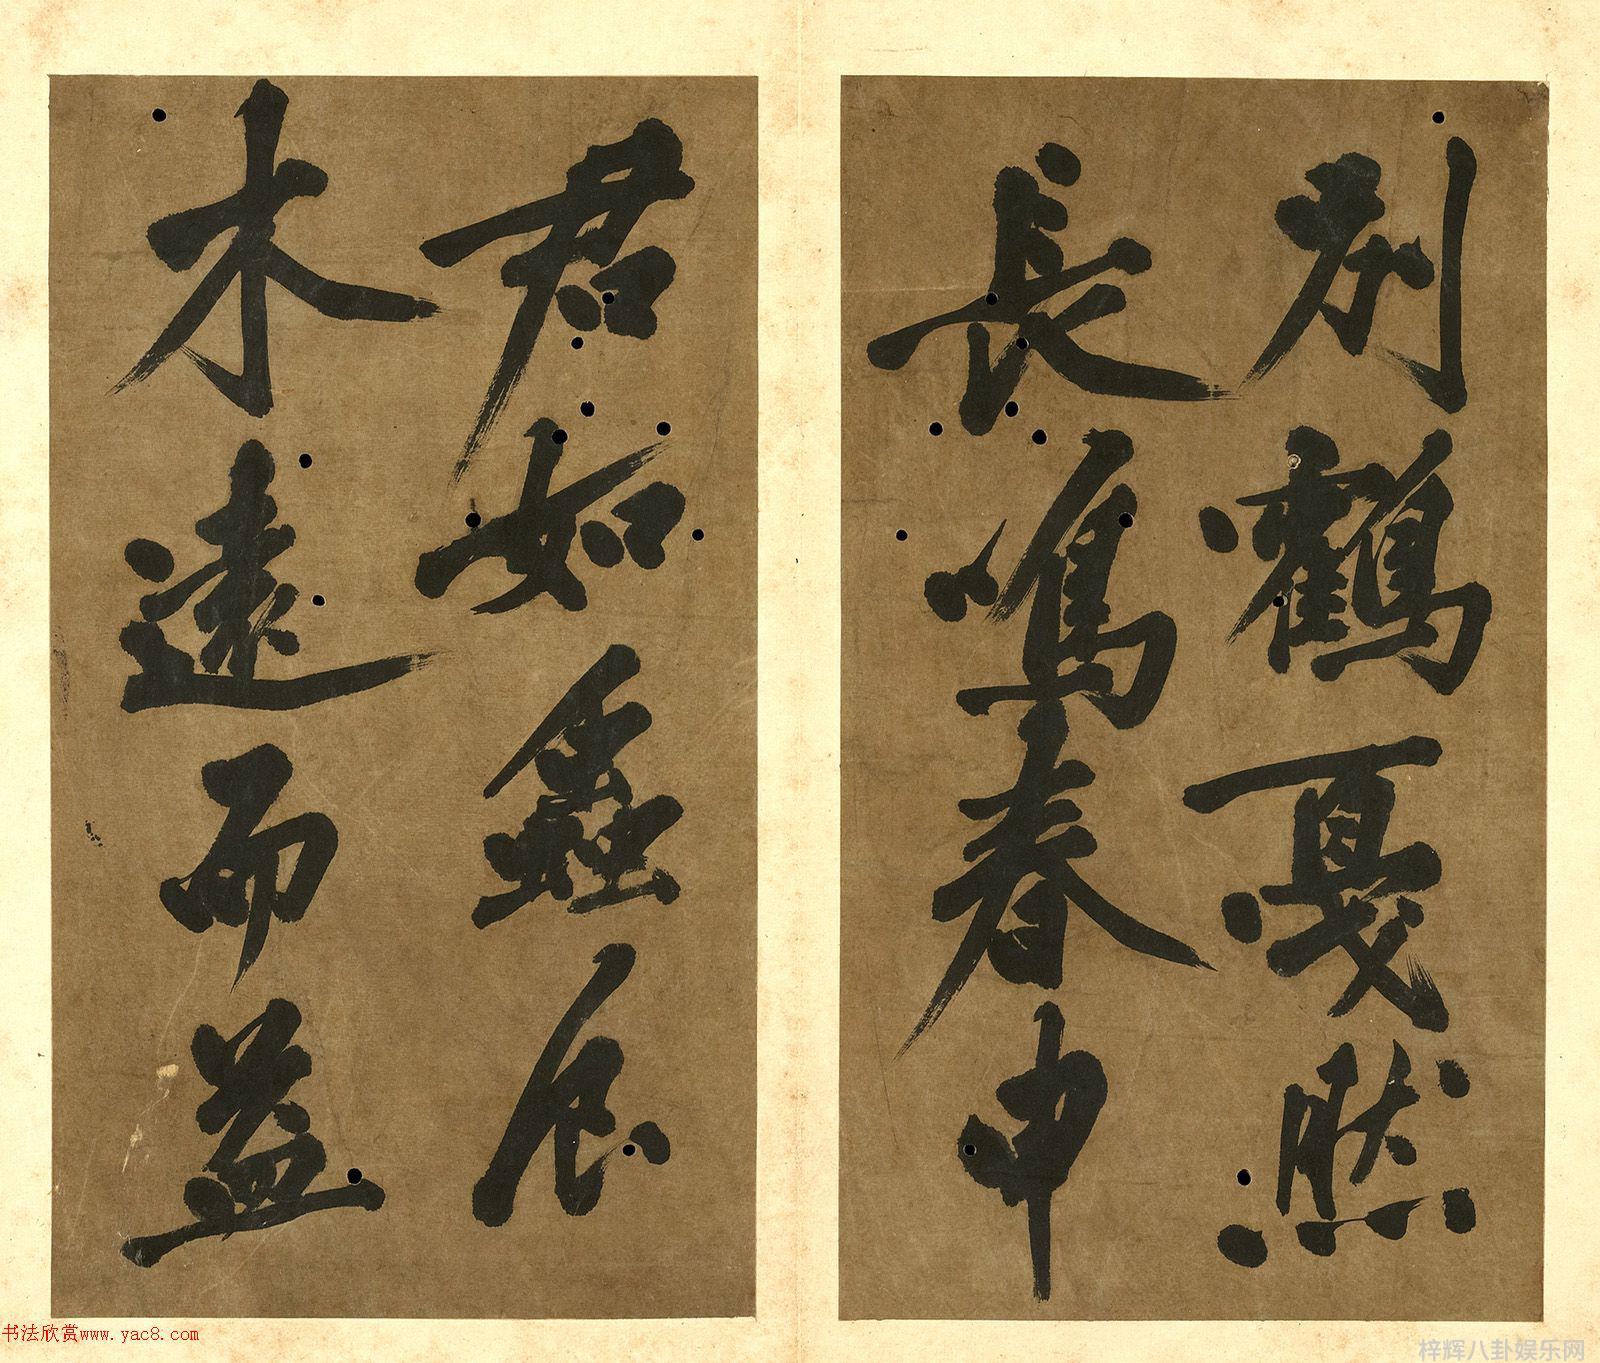 別鶴戛然
長鳴春申
君如蟲食
木遠而益
书法欣赏www.yac8.com
梓辉八卦娱乐网